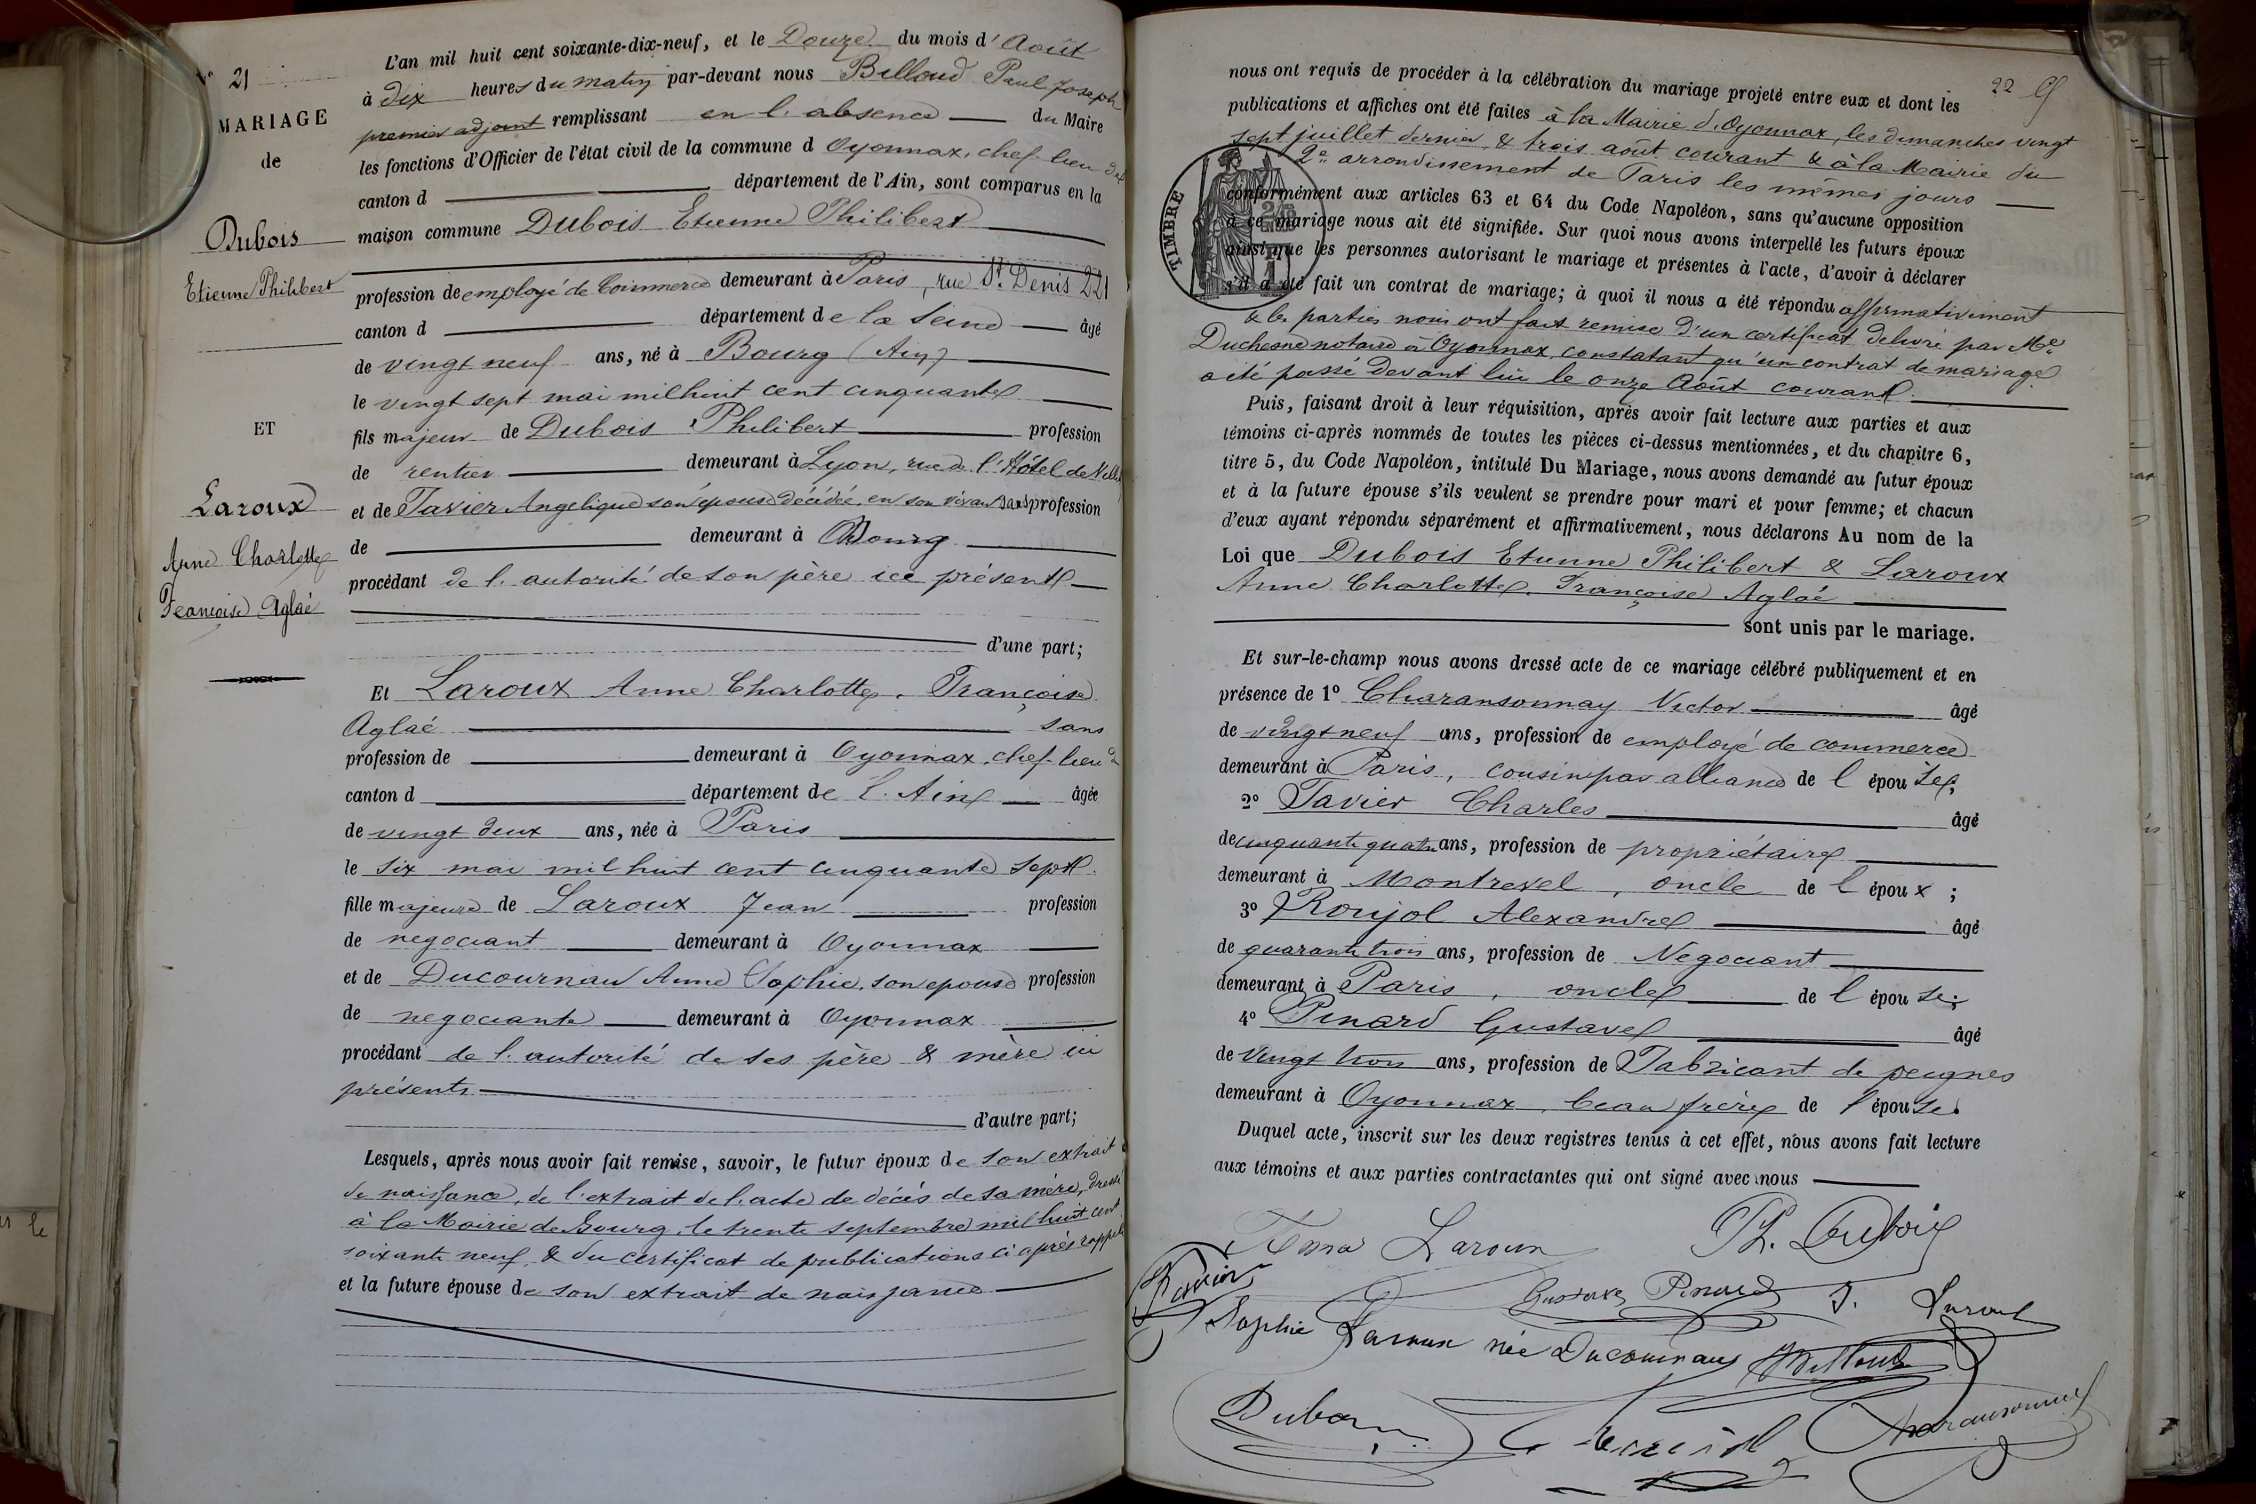 N° 21
MARIAGE
de
Dubois
Etienne Philibert
ET
Laroux
Anne Charlotte
Françoise Aglaé
L'an mil huit cent soixante-dix-neuf, et le Douze du mois d'Août
à dix heures du matin par-devant nous Billoud Paul Joseph
premier adjoint remplissant en l'absence du Maire
les fonctions d'Officier de l'état civil de la commune d Oyonnax, chef-lieu de
canton d département de l'Ain, sont comparus en la
maison commune Dubois Etienne Philibert
profession de employé de Commerce demeurant à Paris, rue St Denis 221
canton d département de la Seine âgé
de vingt neuf ans, né à Bourg (Ain)
le vingt sept mai mil huit cent cinquante
fils majeur de Dubois Philibert profession
de rentier demeurant à Lyon, rue de l'Hôtel de Ville
et de Tavier Angelique son épouse décédée, en son vivant sans profession
de demeurant à Bourg
procédant de l'autorité de son père ici présent
d'une part;
Et Laroux Anne Charlotte, Françoise
Aglaé sans
profession de demeurant à Oyonnax, chef-lieu de
canton d département de l'Ain âgée
de vingt deux ans, née à Paris
le six mai mil huit cent cinquante sept
fille majeure de Laroux Jean profession
de negociant demeurant à Oyonnax
et de Ducournau Anne Sophie, son epouse profession
de negociante demeurant à Oyonnax
procédant de l'autorité de ses père & mère ici
présents
d'autre part;
Lesquels, après nous avoir fait remise, savoir, le futur époux de son extrait
de naissance, de l'extrait de l'acte de décès de sa mère, dressé
à la Mairie de Bourg, le trente septembre mil huit cent
soixante neuf, & du certificat de publications ci après rappelé
et la future épouse de son extrait de naissance
22
nous ont requis de procéder à la célébration du mariage projeté entre eux et dont les
publications et affiches ont été faites à la Mairie d'Oyonnax, les dimanches vingt
sept juillet dernier & trois août courant & à la Mairie du
2e arrondissement de Paris les mêmes jours
TIMBRE
conformément aux articles 63 et 64 du Code Napoléon, sans qu'aucune opposition
à ce mariage nous ait été signifiée. Sur quoi nous avons interpellé les futurs époux
ainsi que les personnes autorisant le mariage et présentes à l'acte, d'avoir à déclarer
s'il a été fait un contrat de mariage; à quoi il nous a été répondu affirmativement
& les parties nous ont fait remise d'un certificat delivré par Me
Duchesne notaire à Oyonnax, constatant qu'un contrat de mariage
a été passé devant lui le onze Août courant.
Puis, faisant droit à leur réquisition, après avoir fait lecture aux parties et aux
témoins ci-après nommés de toutes les pièces ci-dessus mentionnées, et du chapitre 6,
titre 5, du Code Napoléon, intitulé Du Mariage, nous avons demandé au futur époux
et à la future épouse s'ils veulent se prendre pour mari et pour femme; et chacun
d'eux ayant répondu séparément et affirmativement, nous déclarons Au nom de la
Loi que Dubois Etienne Philibert & Laroux
Anne Charlotte, Françoise Aglaé
sont unis par le mariage.
Et sur-le-champ nous avons dressé acte de ce mariage célébré publiquement et en
présence de 1° Charansonnay Victor âgé
de vingt neuf ans, profession de employé de commerce
demeurant à Paris, cousin par alliance de l'épouse;
2° Tavier Charles âgé
de cinquante quatre ans, profession de propriétaire
demeurant à Montrevel, oncle de l'époux;
3° Roujol Alexandre âgé
de quarante trois ans, profession de Negociant
demeurant à Paris, oncle de l'épouse;
4° Pinard Gustave âgé
de vingt trois ans, profession de Fabricant de peignes
demeurant à Oyonnax, beau frère de l'épouse.
Duquel acte, inscrit sur les deux registres tenus à cet effet, nous avons fait lecture
aux témoins et aux parties contractantes qui ont signé avec nous
Anna Laroux Ph. Dubois
Tavier Gustave Pinard J. Laroux
Sophie Laroux née Ducournau Billoud
Dubois Charansonnay